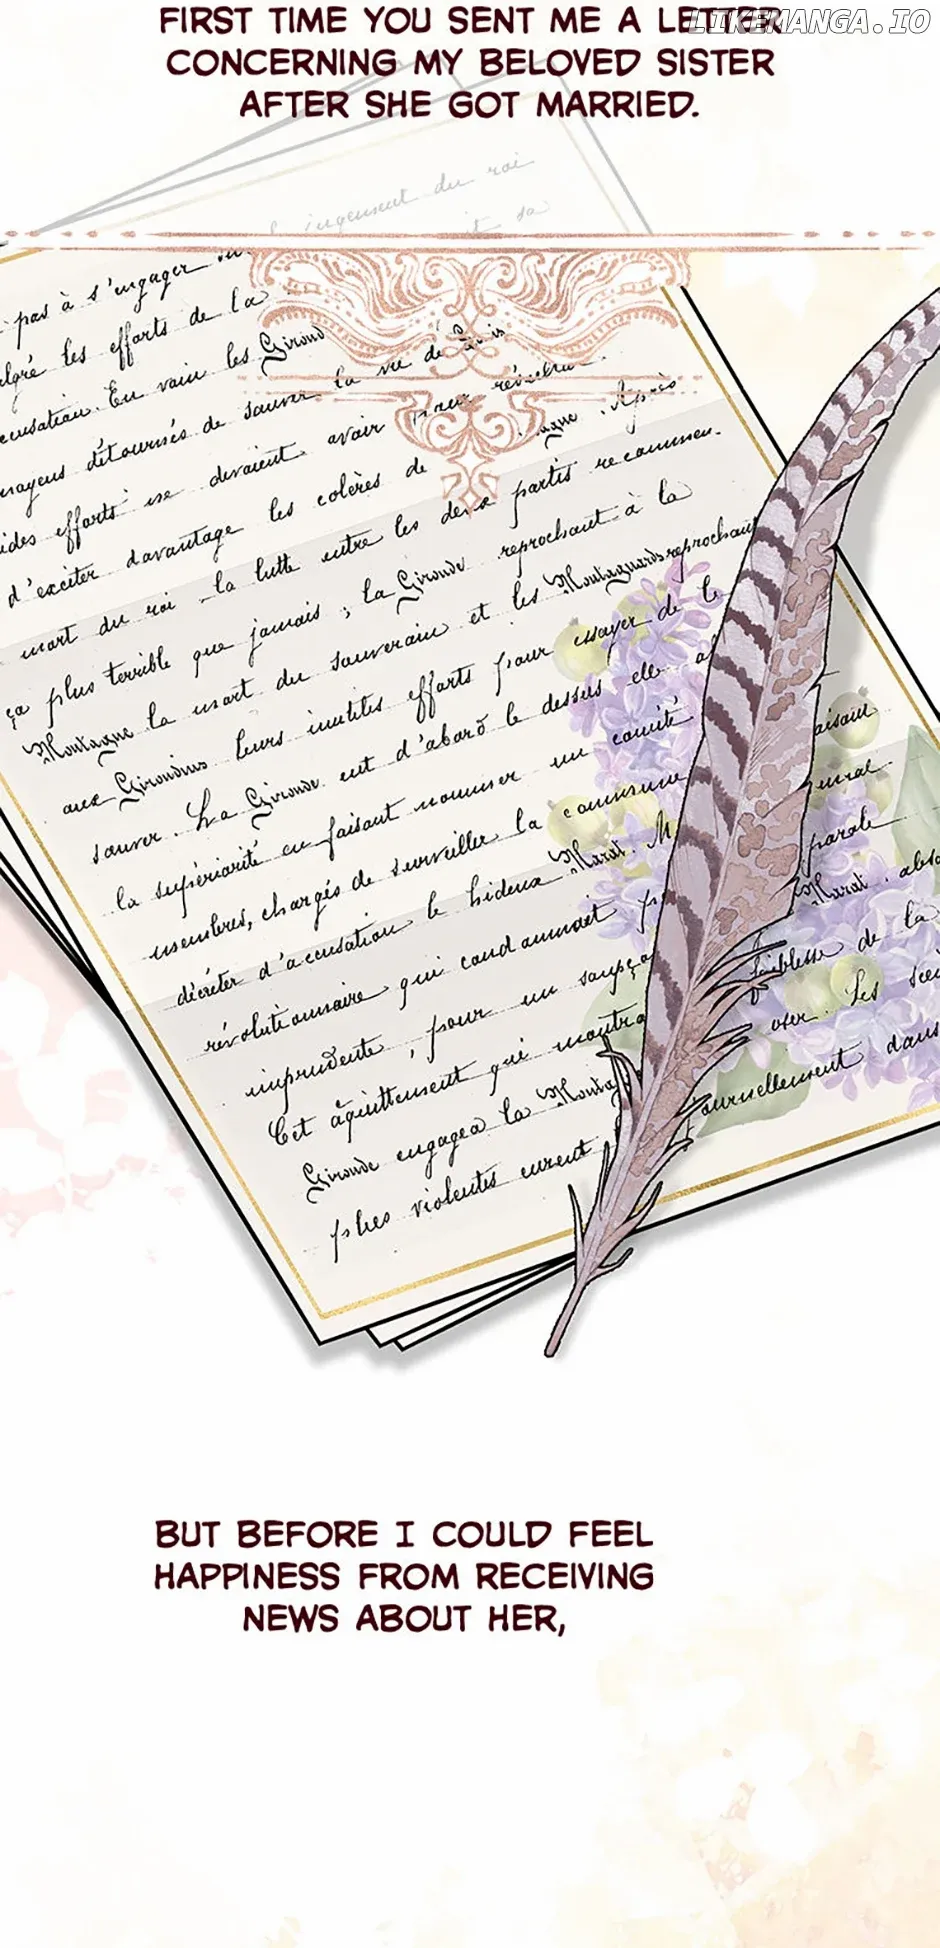 FIRST TIME YOU SENT ME A LETTER
LIKEMANGA.IO
CONCERNING MY BELOVED SISTER
AFTER SHE GOT MARRIED.
du roi
sa
pas à s'engager
les efforts de la
En vain les Girond
détournés de sauver la vie de
efforts ne devaient avoir pour
d'exciter davantage les colères de Après
mort du roi la lutte entre les deux partis recommen
ça plus terrible que jamais ; la Gironde reprochant à la
Montagne la mort du souverain et les Montagnards reprochant
aux Girondins leurs inutiles efforts pour essayer de le
sauver. La Gironde eut d'abord le dessus elle
la supériorité en faisant nommer un comité
membres, chargés de surveiller la commune
décréter d'accusation le hideux Marat. parole
révolutionnaire qui condamnait Marat
imprudente, pour un faiblesse de la
Cet acquittement qui montra oser. Les
Gironde engagea la dans
plus violentes eurent
BUT BEFORE I COULD FEEL
HAPPINESS FROM RECEIVING
NEWS ABOUT HER,